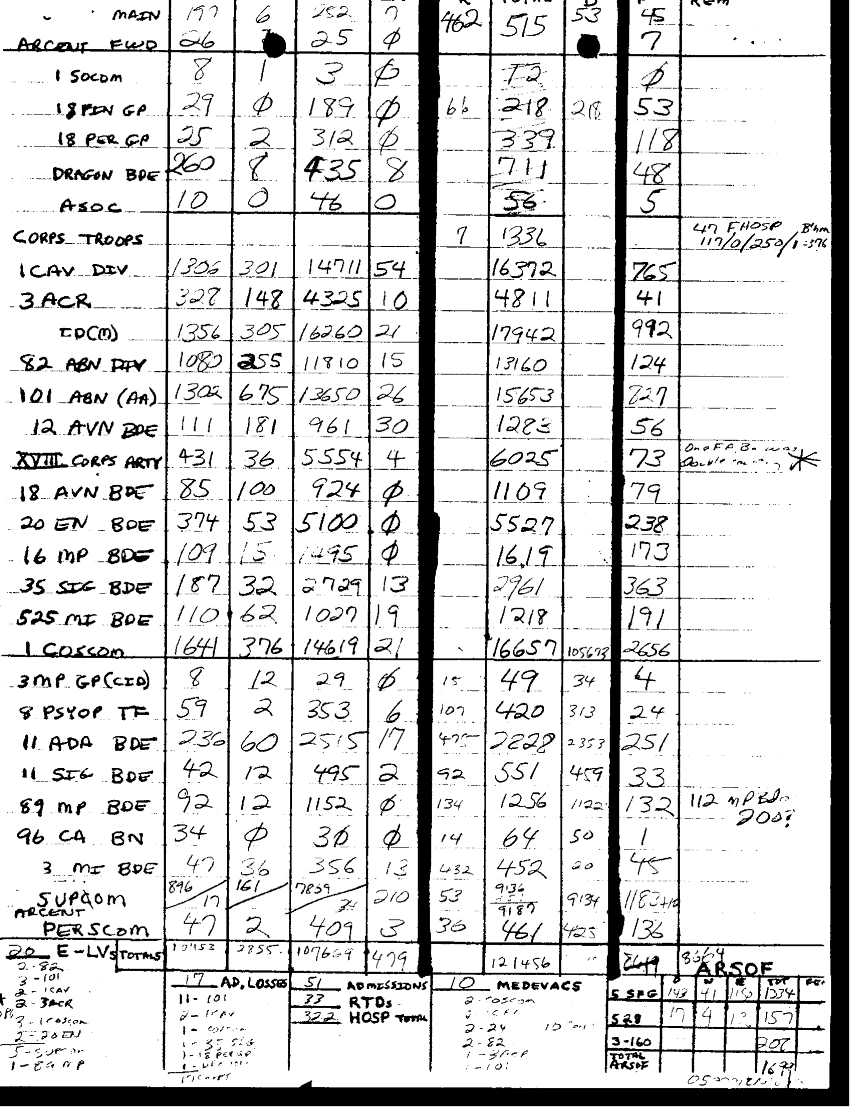 MAIN 197 6 252 7 462 515 53 45
ARCENT FWD 26 25 ϕ 7
1 SOCOM 8 1 3 ϕ 12 ϕ
18 FIN GP 29 ϕ 189 ϕ 66 218 218 53
18 PER GP 25 2 312 ϕ 339 118
DRAGON BDE 260 8 435 8 711 48
ASOC 10 0 46 0 56 5
CORPS TROOPS 7 1336 47 FHOSP
117/0/250/1=
1 CAV DIV 1306 301 14711 54 16372 765
3 ACR 328 148 4325 10 4811 41
ID(M) 1356 305 16260 21 17942 992
82 ABN DIV 1080 255 11810 15 13160 124
101 ABN (AA) 1302 675 13650 26 15653 827
12 AVN BDE 111 181 961 30 1283 56
XVIII CORPS ARTY 431 36 5554 4 6025 73 One FA Bn was
Double
18 AVN BDE 85 100 924 ϕ 1109 79
20 EN BDE 374 53 5100 ϕ 5527 238
16 MP BDE 109 15 1495 ϕ 1619 173
35 SIG BDE 187 32 2729 13 2961 363
525 MI BDE 110 62 1027 19 1218 191
1 COSCOM 1641 376 14619 21 16657 105673 2656
3 MP GP (CID) 8 12 29 ϕ 15 49 34 4
8 PSYOP TF 59 2 353 6 107 420 313 24
11 ADA BDE 236 60 2515 17 475 2828 2353 251
11 SIG BDE 42 12 495 2 92 551 459 33
89 MP BDE 92 12 1152 ϕ 134 1256 1122 132 112 MP BDo
200?
96 CA BN 34 ϕ 30 ϕ 14 64 50 1
3 MI BDE 47 36 356 13 432 452 20 45
SUPCOM 896 17 161 7859 210 53 9136 9187 9134 1183
ARCENT
PERSCOM 47 2 409 3 36 461 425 136
20 E-LVs TOTALS 2855 107669 479 121456 8664
ARSOF
2-82
3-101
2-1CAV
2-3ACR
3-1COSCOM
2-20EN
5-SUPCOM
1-89 MP
17 AD. LOSSES
11-101
2-1CAV
1-COSCOM
1-35 SIG
1-18 PERGP
51 ADMISSIONS
33 RTDs
322 HOSP TOTAL
10 MEDEVACS
2-COSCOM
2-24
2-82
1-3ACR
1-101
O W E TOT
5 SFG 142 41 1150 1334
528 17 4 157
3-160 202
TOTAL
ARSOF 1693